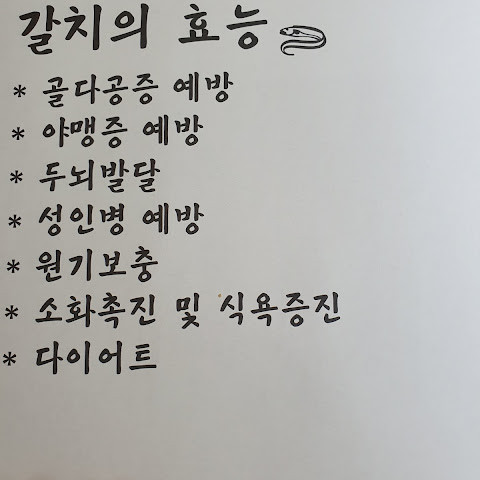 갈치의 효능
* 골다공증 예방
* 야맹증 예방
* 두뇌발달
* 성인병 예방
* 원기보충
* 소화촉진 및 식욕증진
* 다이어트